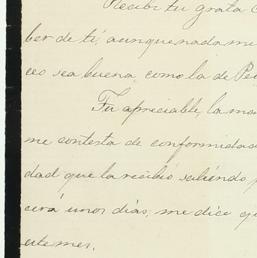 Recibí tu grata
ber de ti, aunque nada me
ceo sea buena como la de
Tu apreciable la
me contesta de conformidad
dad que la recibio saliendo
cirá unos dias, me dice
ute mes.